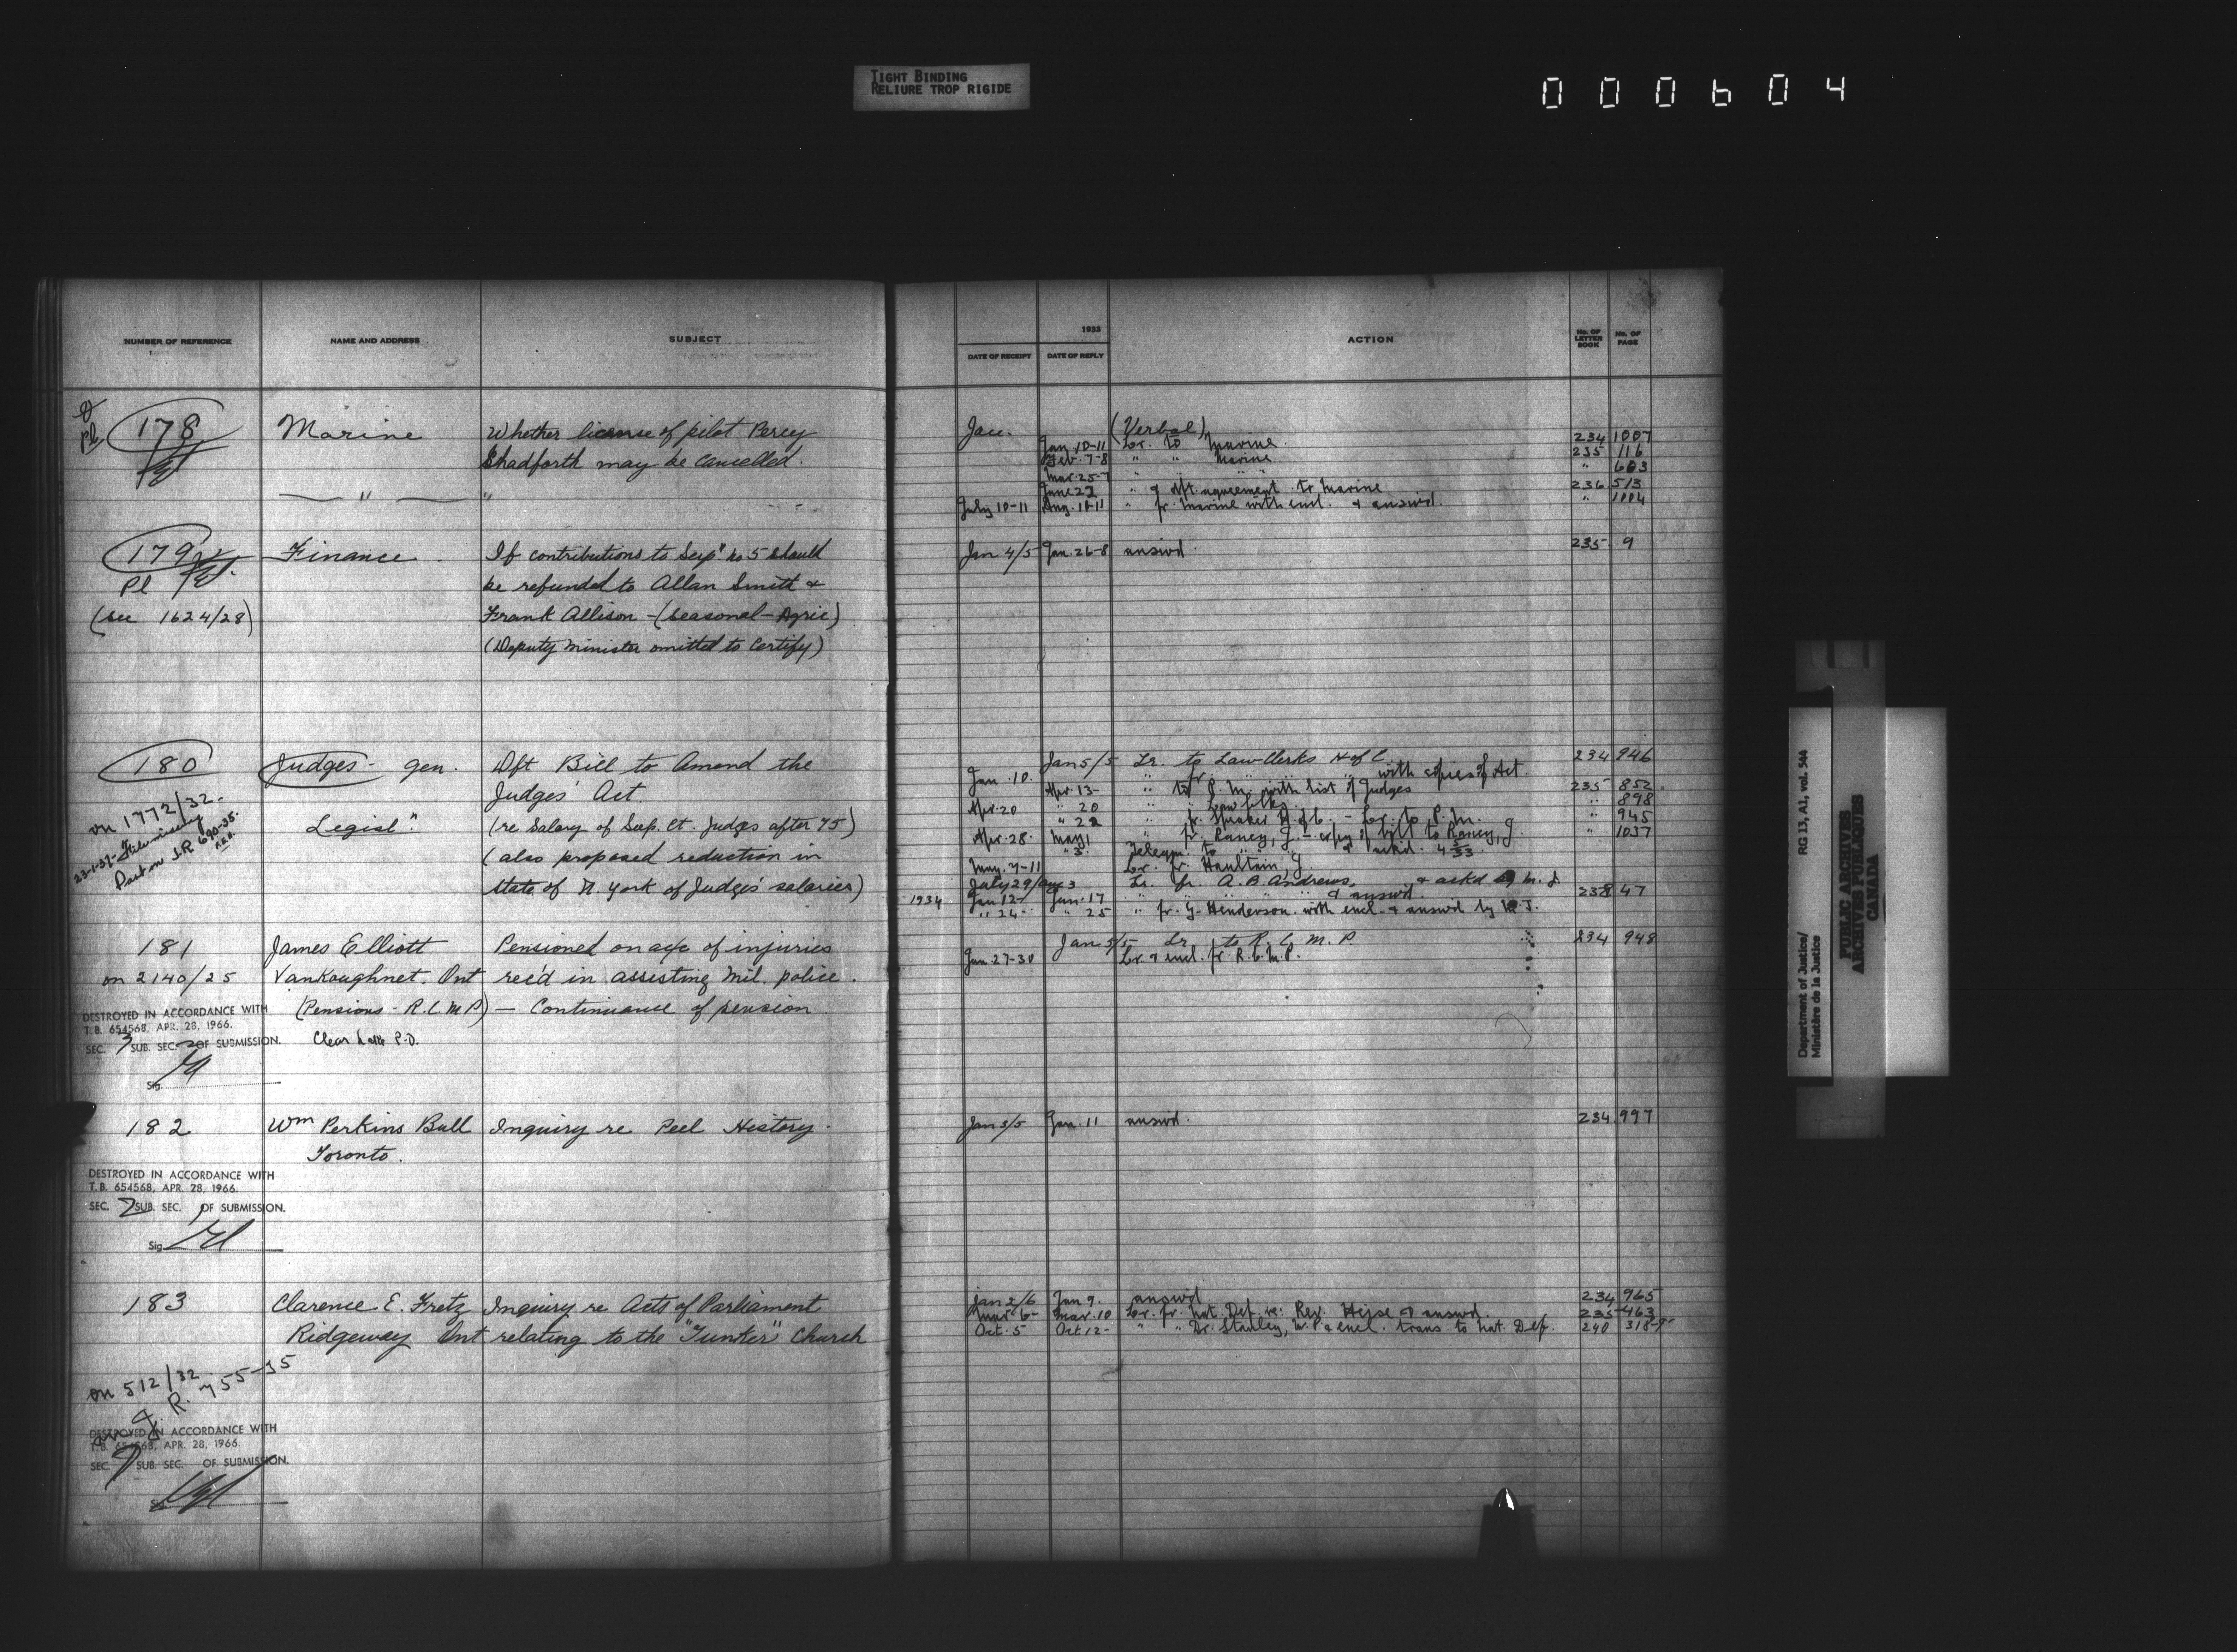 TIGHT BINDING
RELIURE TROP RIGIDE
000604
NUMBER OF REFERENCE NAME AND ADDRESS SUBJECT
178 Marine Whether license of pilot Percy
Pl Shadforth may be cancelled.
— " — "
179 Finance If contributions to Sup. no 5 should
Pl be refunded to Allan Smith &
(see 1624/28) Frank Allison - (seasonal - Agric)
(Deputy Minister omitted to Certify)
180 Judges - gen. Dft Bill to Amend the
Judges' Act.
on 1772/32. Legisl". (re Salary of Sup. Ct. Judges after 75)
23-1-37- (also proposed reduction in
Part on J.R 690-35. State of N. York of Judges' salaries)
181 James Elliott Pensioned on a/c of injuries
on 2140/25 VanKoughnet. Ont rec'd in assisting Mil. police.
(Pensions - R.C.M.P) — Continuance of pension
DESTROYED IN ACCORDANCE WITH
T.B. 654568, APR. 28, 1966.
SEC. 3 SUB. SEC. 2 OF SUBMISSION. Clear Lake P.O.
Sig.
182 Wm Perkins Bull Inquiry re Peel History.
Toronto.
DESTROYED IN ACCORDANCE WITH
T.B. 654568, APR. 28, 1966.
SEC. 2 SUB. SEC. 1 OF SUBMISSION.
Sig.
183 Clarence E. Fretz Inquiry re Acts of Parliament
Ridgeway Ont relating to the "Tunker" Church
on 512/32
J. R. 755-35
DESTROYED IN ACCORDANCE WITH
T.B. 654568, APR. 28, 1966.
SEC. SUB. SEC. OF SUBMISSION.
Sig.
1933
DATE OF RECEIPT DATE OF REPLY ACTION No. OF LETTER BOOK No. OF PAGE
Jan. (Verbal)
Jan 10-11 Lr. to Marine. 234 1007
Feb. 7-8 " " Marine 235 116
Mar. 25-7 " " " " 603
June 27 " & dft. agreement to Marine 236 513
July 10-11 Aug. 10-11 " fr. Marine with encl. & answd. " 1004
Jan 4/5 Jan. 26-8 answd. 235 9
Jan 5/5 Lr. to Law Clerks H of C 234 946
Jan. 10 " fr. " " " with copies of Act
Apr. 13- " to P.M. with list of Judges 235 852
Apr. 20 " 20 " " Law Clks. " 898
" 22 " fr. Speaker H. of C. - Lr. to P.M. " 945
Apr. 28. May 1 " fr. Raney, J. - copy of bill to Raney, J. " 1037
" 3. Telegm. to " " & ackd. 4/5/33.
May. 7-11 Lr. fr. Haultain, J.
July 29/Aug 3 Lr. fr. A. B. Andrews, & ackd by M. J.
1934 Jan 12- Jan. 17 " " " " & answd. 238 47
" 24- " 25 " fr. G. Henderson with encl. & answd by M. J.
Jan 5/5 Lr. to R. C. M. P. 234 948
Jan 27-30 Lr. & encl. fr. R.C.M.P.
Jan 5/5 Jan. 11 answd. 234 997
Jan 2/6 Jan 9. answd 234 965
Mar. 6- Mar. 10 Lr. fr. Nat. Def. re: Rev. Heise & answd. 235 463
Oct. 5 Oct 12- " " Dr. Stanley, M.P. & encl. trans to Nat. Def. 240 318-9
Department of Justice/ RG 13, A1, vol. 544
Ministère de la Justice
PUBLIC ARCHIVES
ARCHIVES PUBLIQUES
CANADA